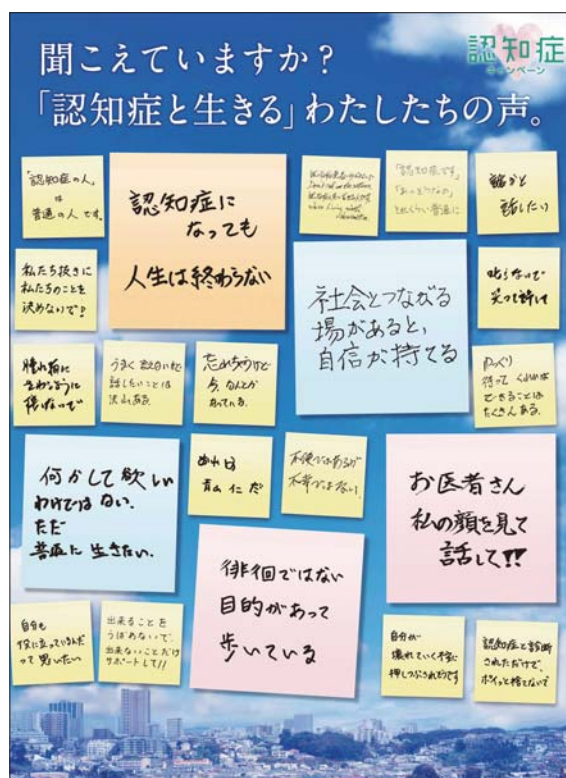 聞こえていますか?
「認知症と生きる」わたしたちの声。
認知症
キャンペーン
「認知症の人」
は
普通の人です。
認知症に
なっても
人生は終わらない
「認知症です」
「あっそうなの」
それくらい普通に
誰かと
話したい
私たち抜きに
私たちのことを
決めないで?
社会とつながる
場があると、
自信が持てる
叱らないで
笑って許して
腫れ物に
さわるように
うまく言えないけど
話したいことは
沢山ある。
忘れちゃうけど
今、なんとか
なっている。
ゆっくり
待ってくれれば
できることは
たくさんある。
何かして欲しい
わけではない。
ただ
普通に生きたい。
おれは
不便ではあるが
不幸ではない。
お医者さん
私の顔を見て
話して!!
徘徊ではない
目的があって
歩いている
自分も
役に立っているんだ
って思いたい
出来ることを
うばわないで、
出来ないことだけ
サポートして!!
自分が
壊れていく不安に
押しつぶされそうです
認知症と診断
されただけで、
ポイッと捨てないで